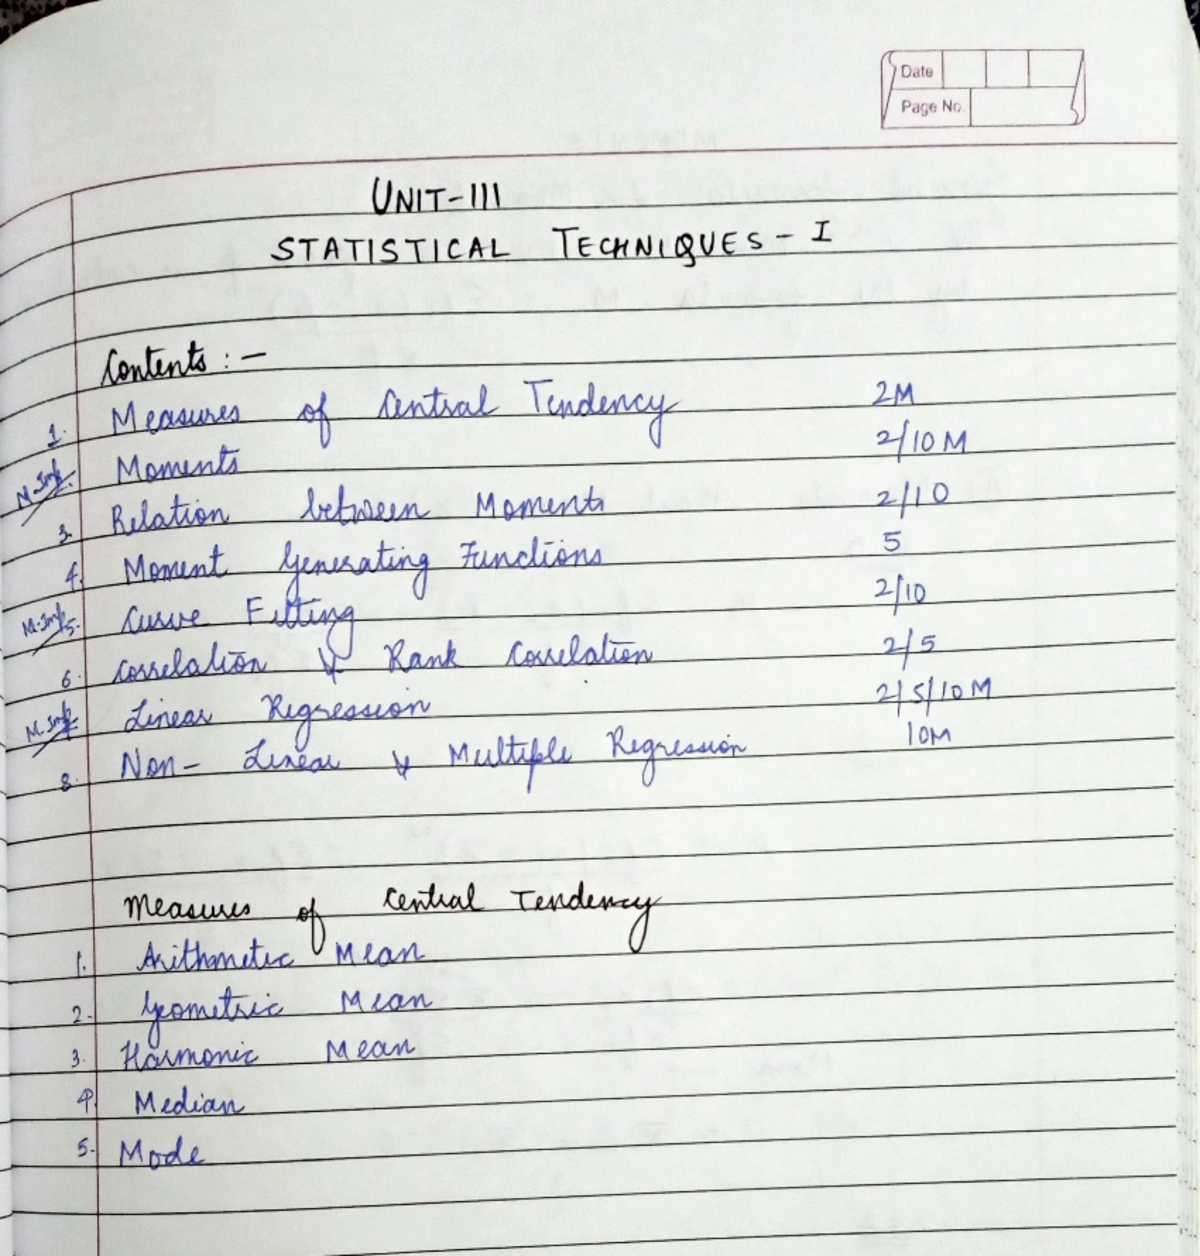 Date
Page No.
UNIT-III
STATISTICAL TECHNIQUES - I
Contents : -
1. Measures of Central Tendency 2M
M.Imp. Moments 2/10 M
3. Relation between Moments 2/10
4. Moment Generating Functions 5
M.Imp 5. Curve Fitting 2/10
6. Correlation & Rank Correlation 2/5
M.Imp Linear Regression 2/5/10 M
8. Non-Linear & Multiple Regression 10M
Measures of Central Tendency
1. Arithmetic Mean
2. Geometric Mean
3. Harmonic Mean
4. Median
5. Mode